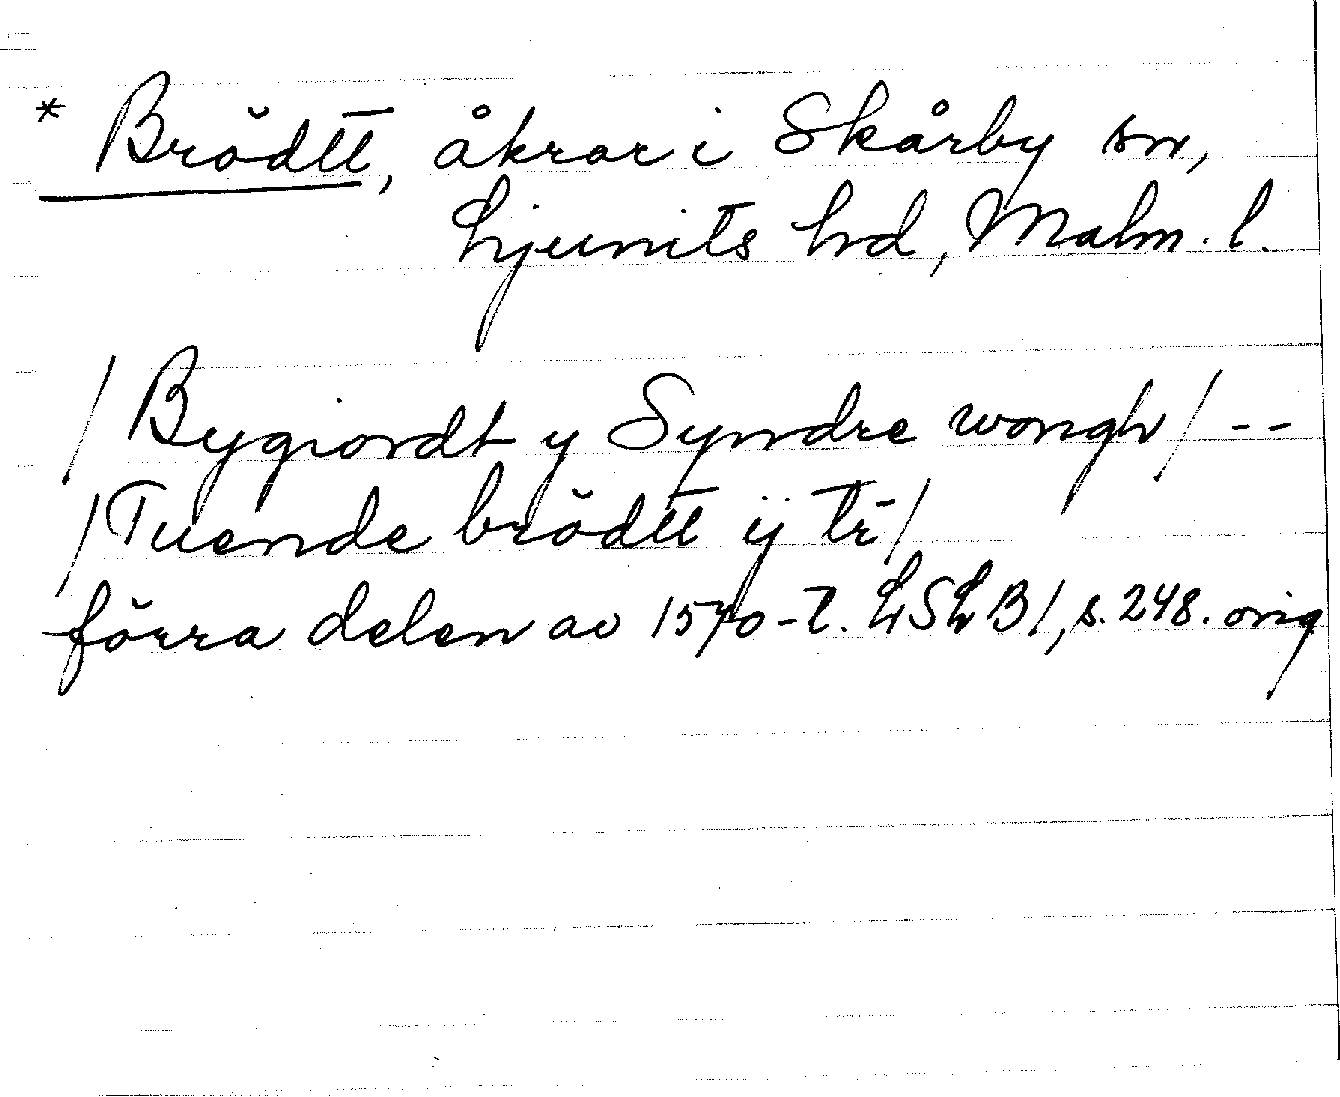 * Brödtt, åkrar i Skårby sn,
Ljunits hd, Malm. l.
/Bygiordt y Syndre wongh/ --
/Tuende brödtt ÿ tr/
förra delen av 1570-t. LSLB1, s. 248. orig